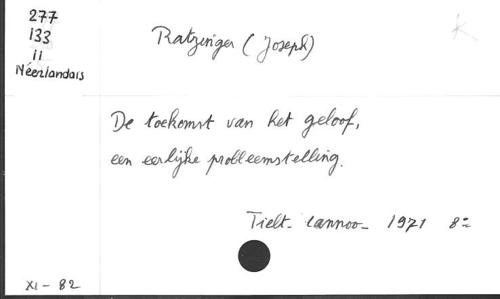 277
133
ii
Néerlandais
Ratzinger (Joseph)
K
De toekomst van het geloof,
een eerlijke probleemstelling.
Tielt - Lannoo - 1971 8°
XI - 82